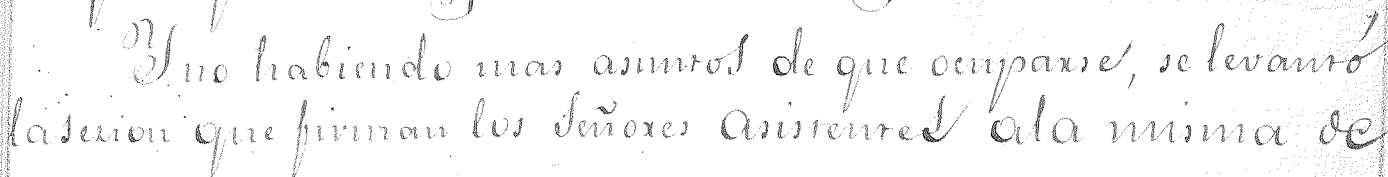 Y no habiendo mas asuntos de que ocuparse, se levantó
la sezion que firman los Señores Asistentes a la misma de